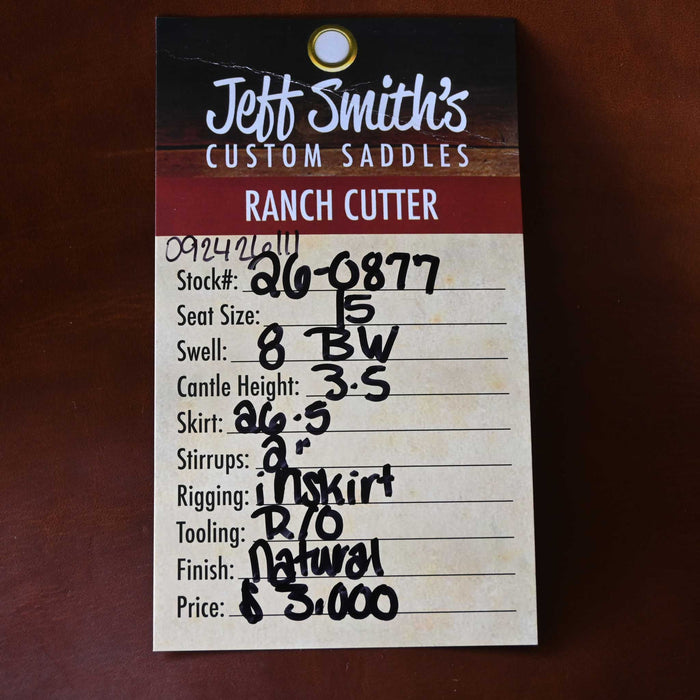 Jeff Smith's
CUSTOM SADDLES
RANCH CUTTER
092426111
Stock#: 26-0877
Seat Size: 15
Swell: 8 BW
Cantle Height: 3.5
Skirt: 26.5
Stirrups: 2"
Rigging: inskirt
Tooling: R/O
Finish: Natural
Price: $ 3.000